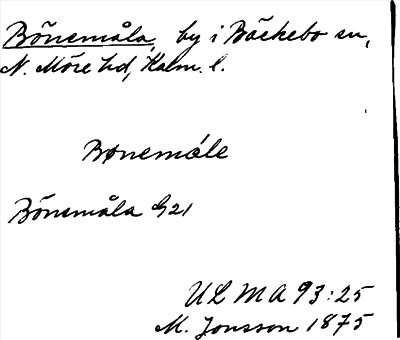 Bönemåla, by i Bäckebo sn,
N. Möre hd, Kalm. l.
Bonemåle
Bönemåla G21
ULMA 93:25
M. Jonsson 1875